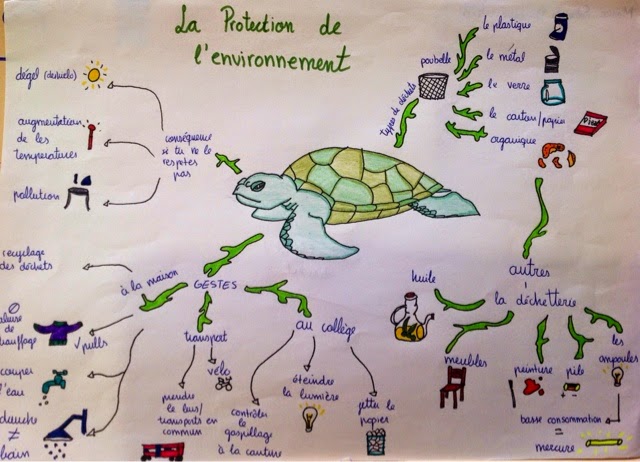 La Protection de
l'environnement
dégel (deshielo)
augmentation
de les
températures
pollution
conséquence
si tu ne le
respetes
pas
types de déchets
poubelle
le plastique
le métal
le verre
le carton/papier
organique
autres
à la déchetterie
huile
meubles
peinture
pile
les
ampoules
basse consommation
=
mercure
GESTES
à la maison
recyclage
des déchets
chauffage
√ pulls
couper
l'eau
douche
≠
bain
transport
vélo
prendre
le bus/
transports en
commun
au collège
contrôler
le
gaspillage
à la cantine
éteindre
la lumière
jetter le
papier